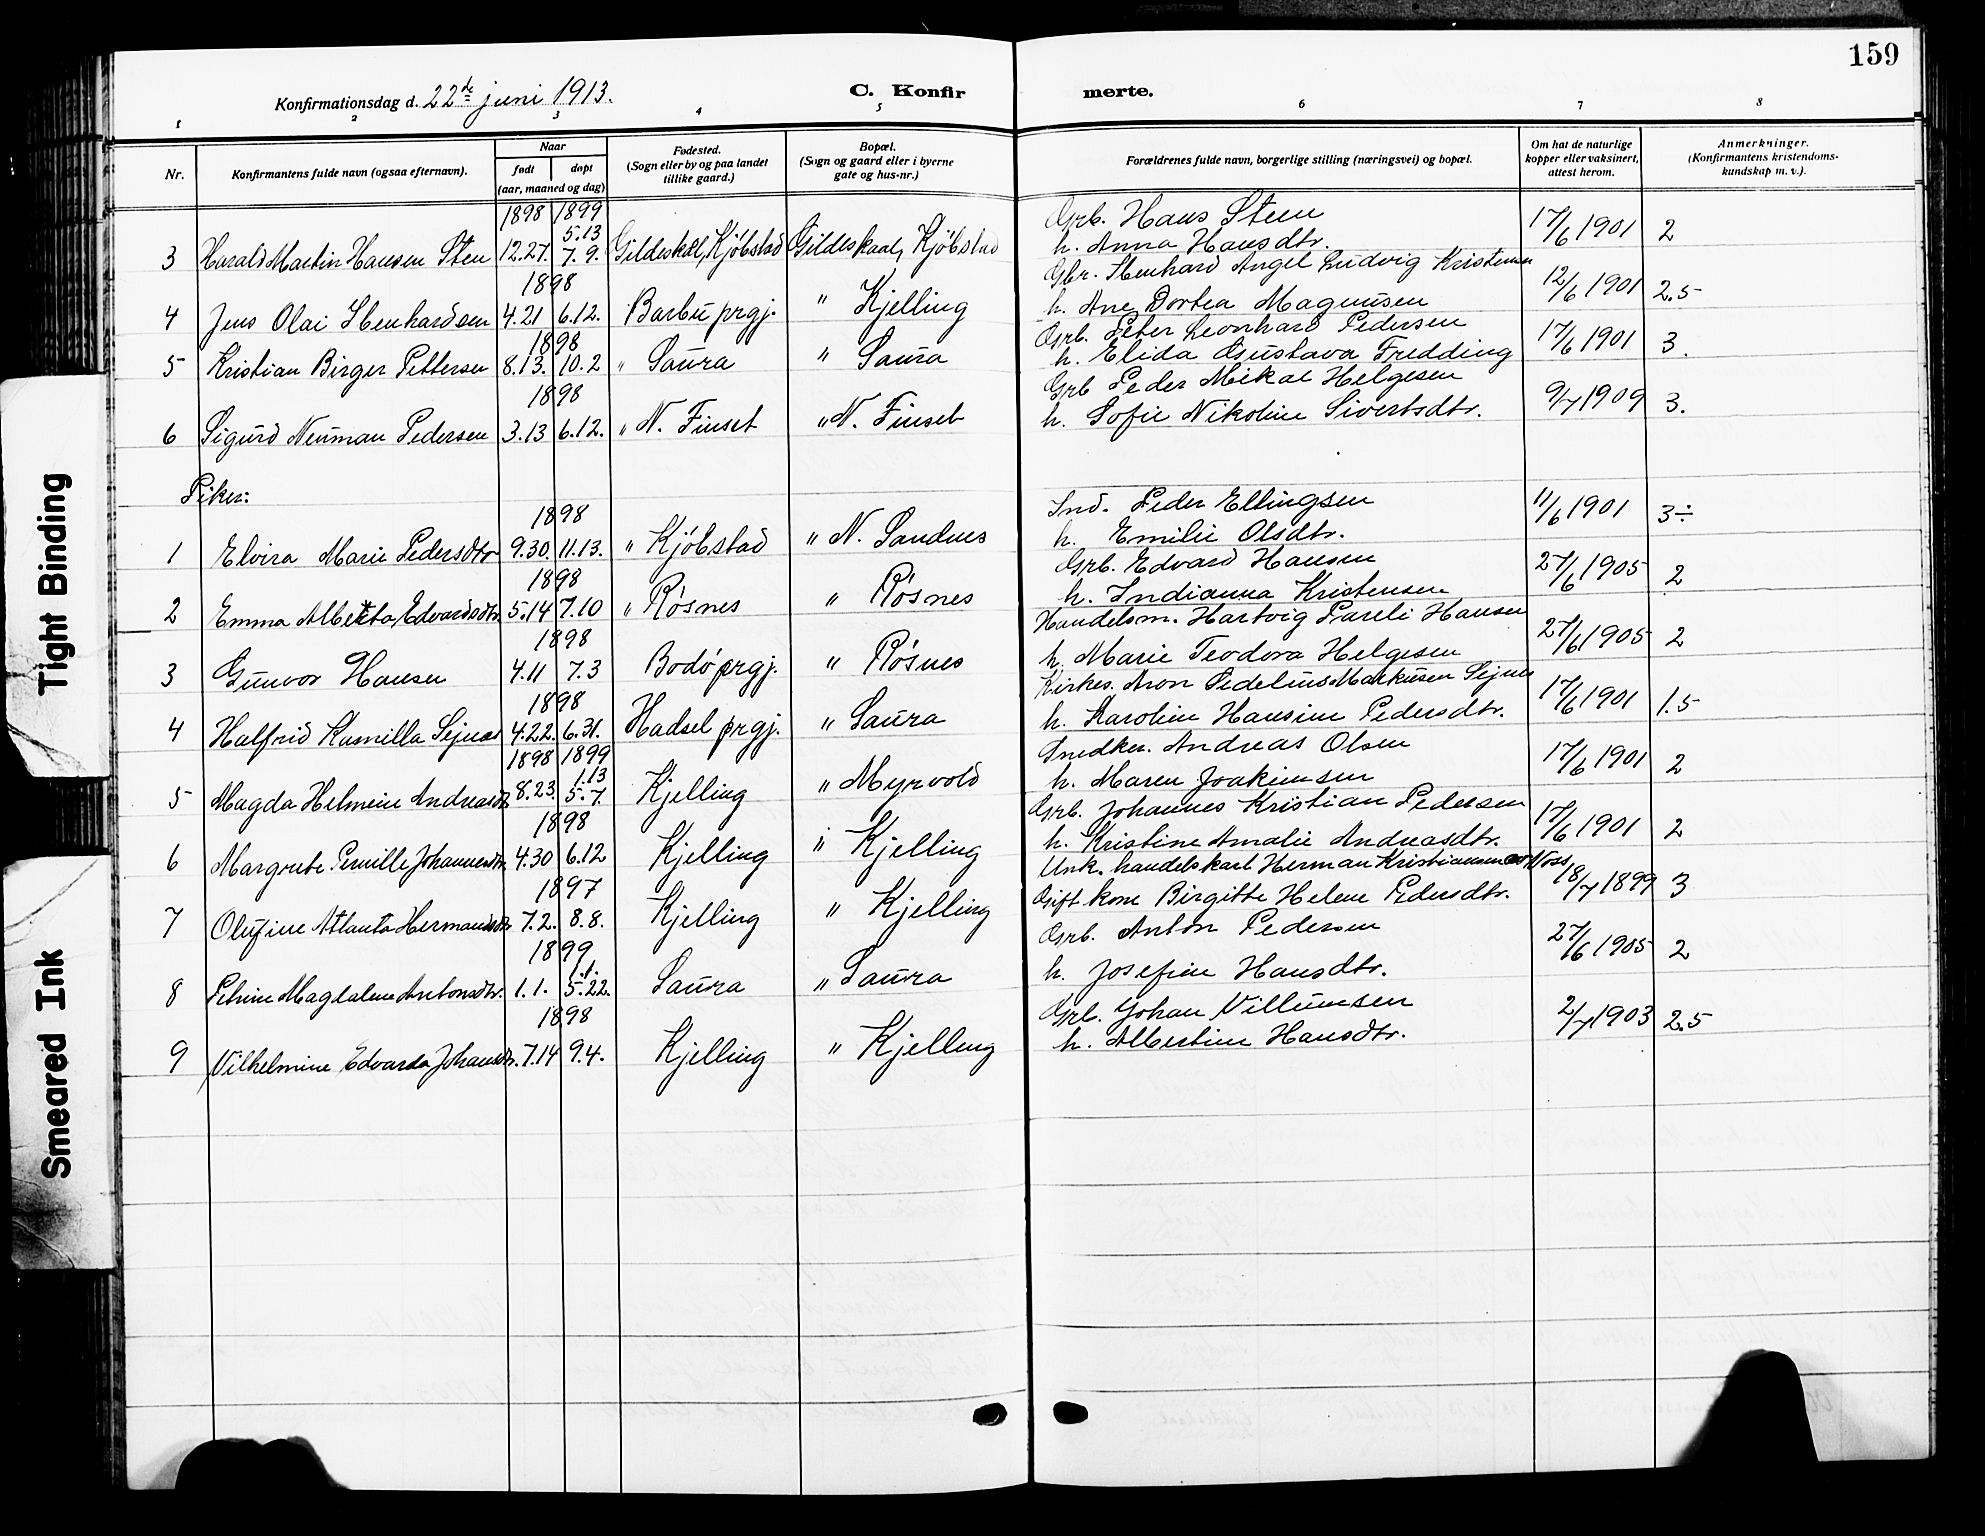 159
Konfirmationsdag d. 22de juni 1913.
C. Konfir merte.
1 2 3 4 5 6 7 8
Nr.
Konfirmantens fulde navn (ogsaa efternavn).
Naar
født døpt
(aar, maaned og dag)
Fødested.
(Sogn eller by og paa landet
tillike gaard.)
Bopæl.
(Sogn og gaard eller i byerne
gate og hus-nr.)
Forældrenes fulde navn, borgerlige stilling (næringsvei) og bopæl.
Om hat de naturlige
kopper eller vaksinert,
attest herom.
Anmerkninger.
(Konfirmantens kristendoms-
kundskap m. v.).
1898 1899 Grb. Hans Steen
5.13
3 Harald Martin Hansen Sten 12.27. 7.9. Gildeskål, Kjöbstad Gildeskaal, Kjöbstad h. Anna Hansdtr. 17/6 1901 2
1898 Gbr. Stenhard Angel Ludvig Kristensen
4 Jens Olai Stenhardsen 4.21 6.12. Barbu prgj. " Kjelling h. Ane Dortea Magnusen 12/6 1901 2.5
1898 Grb. Peter Leonhard Pedersen
5 Kristian Birger Pettersen 8.13. 10.2 " Saura " Saura h. Elida Gustava Fredding 17/6 1901 3.
1898 Grb Peder Mikal Helgesen
6 Sigurd Neuman Pedersen 3.13 6.12. " N. Finset " N. Finset h. Sofie Nikoline Sivertsdtr. 9/7 1909 3.
Piker:
1898 Ind. Peder Ellingsen
1 Elvira Marie Pedersdtr 9.30. 11.13. " Kjöbstad " N. Sandnes h. Emilie Olsdtr. 11/6 1901 3÷
1898 Grb. Edvard Hansen
2 Emma Alberta Edvardsdtr. 5.14 7.10 " Rösnes " Rösnes h. Indianna Kristensen 27/6 1905 2
1898 Handelsm. Hartvig Pareli Hansen
3 Gunvor Hansen 4.11 7.3 Bodö prgj. " Rösnes h. Marie Teodora Helgesen 27/6 1905 2
1898 Kirkes. Aron Pedelius Markusen Sejnes
4 Halfrid Kamilla Sejnes 4.22. 6.31. Hadsel prgj. " Saura h. Karoline Hansine Pedersdtr. 17/6 1901 1.5
1898 1899 Snedker. Andreas Olsen
1.13
5 Magda Helmine Andreasdtr 8.23. 5.7. Kjelling " Myrvold h. Maren Joakimsen 17/6 1901 2
1898 Grb. Johannes Kristian Pedersen
6 Margrete Pernille Johannesdtr. 4.30 6.12 Kjelling " Kjelling h. Kristine Amalie Andreasdtr. 17/6 1901 2
1897 Unk. handelskarl Herman Kristiansen av Voss
7 Olufine Atlanta Hermansdtr 7.2. 8.8. Kjelling " Kjelling Gift kone Birgitte Helene Pedersdtr. 18/7 1899 3
1899 Grb. Anton Pedersen
1.1.
8 Petrine Magdalene Antonsdtr. 1.1. 5.22. Saura " Saura h. Josefine Hansdtr. 27/6 1905 2
1898 Grb. Johan Villumsen
9 Vilhelmine Edvarda Johansdtr. 7.14 9.4. Kjelling " Kjelling h. Albertine Hansdtr. 2/7 1903 2.5
Tight Binding
Smeared Ink